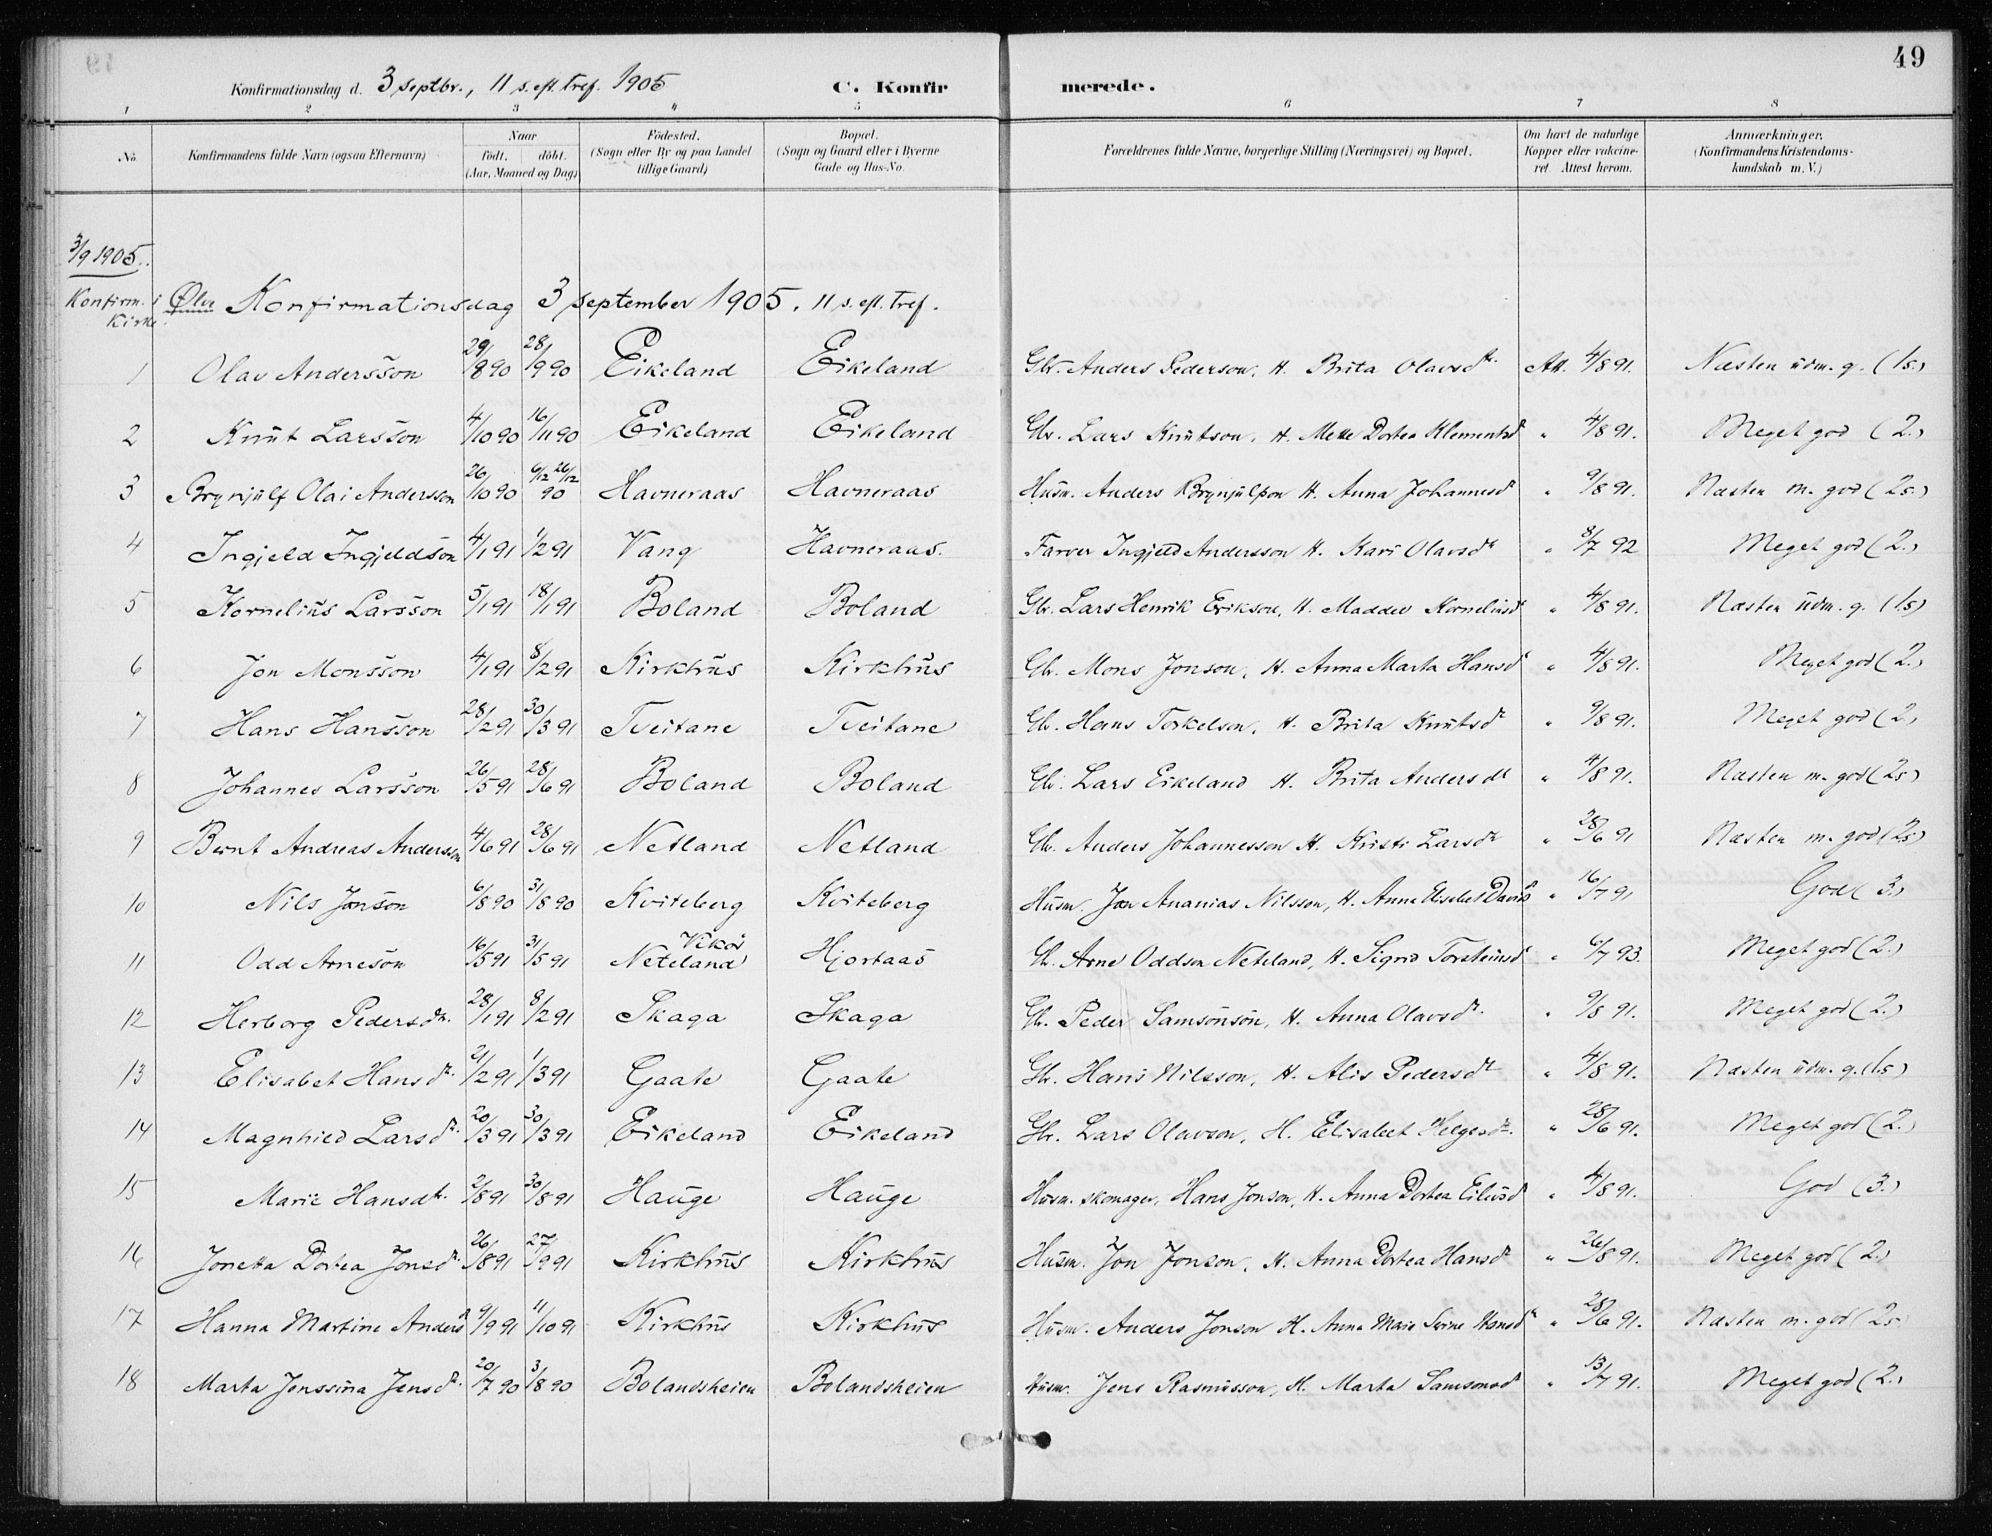 49
Konfirmationsdag d. 3 septbr., 11 s. eft. tref. 1905 C. Konfirmerede.
1 2 3 4 5 6 7 8
No. Konfirmandens fulde Navn (ogsaa Efternavn) Naar födt. döbt. (Aar, Maaned og Dag) Födested. (Sogn eller By og paa Landet tillige Gaard) Bopæl. (Sogn og Gaard eller i Byerne Gade og Hus-No. Forældrenes fulde Navne, borgerlige Stilling (Næringsvei) og Bopæl. Om havt de naturlige Kopper eller vakcineret. Attest herom. Anmærkninger. (Konfirmandens Kristendomskundskab m. V.)
3/9 1905.
Konfirm. i Ølve Kirke. Konfirmationsdag 3 september 1905. 11 s. eft. tref.
1 Olav Andersson 29/8 90 28/9 90 Eikeland Eikeland Gbr. Anders Pederson, H. Brita Olavsdtr. Att. 4/8 91. Næsten udm. g. (1s.)
2 Knut Larsson 4/10 90 16/11 90 Eikeland Eikeland Gbr. Lars Knutson, H. Mette Dortea Klementsdr " 4/8 91. Meget god (2.)
3 Brynjulf Olai Andersson 26/10 90 6/12 26/12 90 Havneraas Havneraas Husm. Anders Brynjulfson H. Anna Johannesdr " 9/8 91. Næsten m. god (2s.)
4 Ingjeld Ingjeldson 4/1 91 1/2 91 Vang Havneraas. Farver Ingjeld Andersson H. Kari Olavsdr " 8/7 92 Meget god (2.)
5 Kornelius Larsson 5/1 91 18/1 91 Boland Boland Gbr. Lars Henrik Erikson, H. Madder Korneliusdr " 4/8 91. Næsten udm. g. (1s)
6 Jon Monsson 4/1 91 8/2 91 Kirkhus Kirkhus Gbr. Mons Jonson, H. Anna Marta Hansdr " 4/8 91. Meget god (2.)
7 Hans Hansson 28/2 91 30/3 91 Tveitane Tveitane Gb. Hans Torkelson, H. Brita Knutsdr " 9/8 91. Meget god (2.)
8 Johannes Larsson 26/5 91 28/6 91 Boland Boland Gb. Lars Eikeland H. Brita Andersdr " 4/8 91. Næsten m. god (2s)
9 Bernt Andreas Andersson 4/6 91 28/6 91 Netland Netland Gb. Anders Johannesson H. Kristi Larsdr " 28/6 91 Næsten m. god (2s)
10 Nils Jonson 6/8 90 31/8 90 Kviteberg Kviteberg Husm. Jon Ananias Nilsson, H. Anne Elsebet Davidsdr " 16/7 91 God (3.)
11 Odd Arneson 16/5 91 31/5 91 Vikør Neteland Hjortaas Gb. Arne Oddson Neteland, H. Sigrid Torsteinsdr " 6/7 93. Meget god (2.)
12 Herborg Pedersdr. 28/1 91 8/2 91 Skaga Skaga Gb. Peder Samsonson, H. Anna Olavsdr. " 9/8 91. Meget god (2.)
13 Elisabet Hansdr. 21/2 91 1/3 91 Gaate Gaate Gb. Hans Nilsson, H. Alis Pedersdr " 4/8 91. Næsten udm. g. (1s)
14 Magnhild Larsdr. 20/3 91 30/3 91 Eikeland Eikeland Gbr. Lars Olavson, H. Elisabet Helgesdr. " 28/6 91. Meget god (2.)
15 Marie Hansdtr. 2/8 91 30/8 91 Hauge Hauge Husm. skomager, Hans Jonson, H. Anna Dortea Eilivsdr " 4/8 91. God (3.)
16 Jonetta Dortea Jonsdr. 26/8 91 27/9 91 Kirkhus Kirkhus Husm. Jon Jonson, H. Anna Dortea Hansdr " 26/8 91. Meget god (2.)
17 Hanna Martine Andersdr 9/9 91 11/10 91 Kirkhus Kirkhus Husm. Anders Jonson H. Anna Marie Serine Hansdr " 28/6 91. Næsten m. god (2s.
18 Marta Jenssina Jensdr. 20/7 90 3/8 90 Bolandsheien Bolandsheien Husm. Jens Rasmusson, H. Marta Samsonsdr " 13/7 91. Meget god (2.)